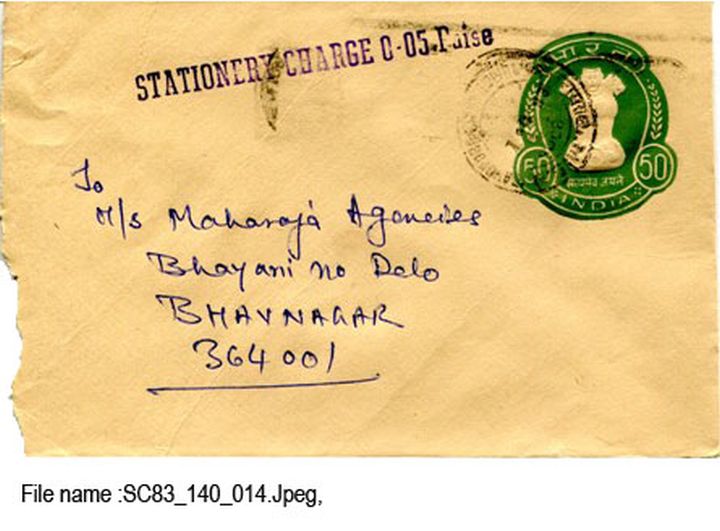 STATIONERY CHARGE 0-05.Paise
भारत
50 50
सत्यमेव जयते
INDIA
To
M/s Maharaja Agencies
Bhayani no Delo
BHAVNAGAR
364001
File name :SC83_140_014.Jpeg,